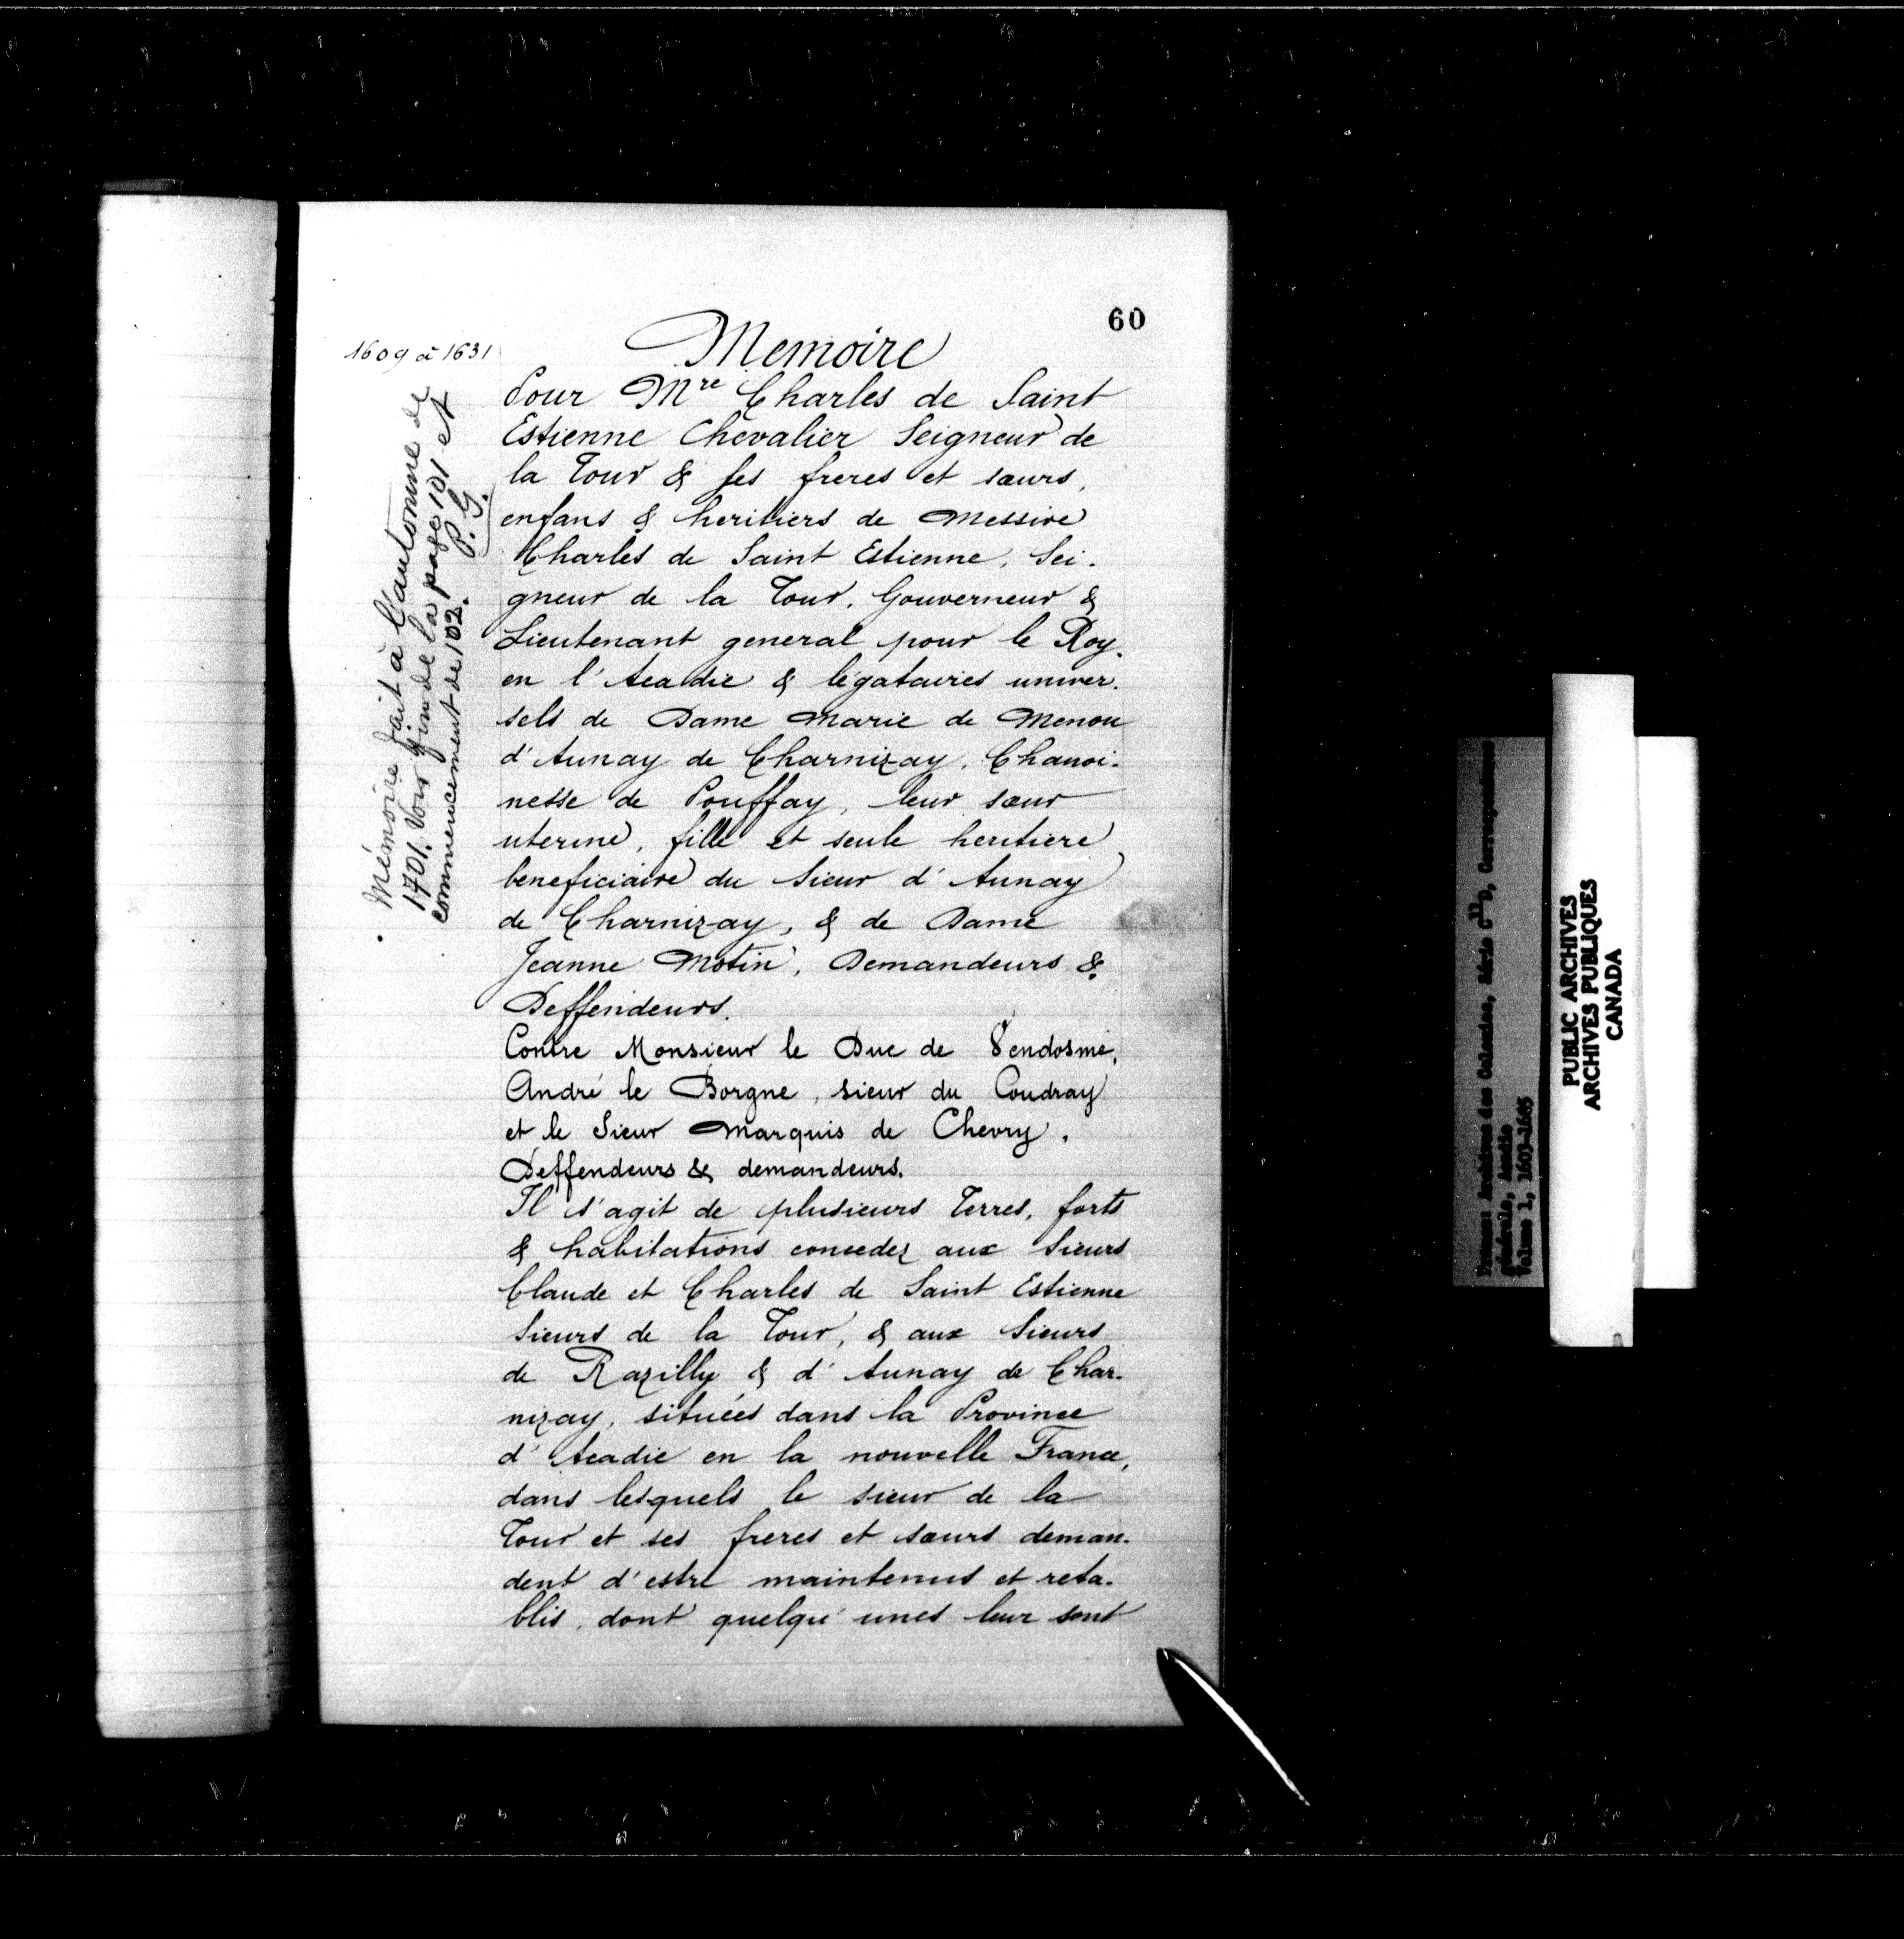 60
1609 à 1631
Mémoire fait à l'automne de
1701. Voir fin de la page 101 et
commencement de 102. P. G.
Memoire
Pour Mre Charles de Saint
Estienne Chevalier Seigneur de
la Tour & ses freres et sœurs,
enfans & heritiers de Messire
Charles de Saint Estienne, Sei-
gneur de la Tour, Gouverneur &
Lieutenant general pour le Roy,
en l'Acadie & légataires univer-
sels de Dame Marie de Menou
d'Aunay de Charnizay, Chanoi-
nesse de Pouffay, leur sœur
uterine, fille et seule heritiere
beneficiaire du Sieur d'Aunay
de Charnizay, & de Dame
Jeanne Motin, Demandeurs &
Deffendeurs.
Contre Monsieur le Duc de Vendosme,
André le Borgne, sieur du Coudray
et le Sieur Marquis de Chevry,
Deffendeurs & demandeurs.
Il s'agit de plusieurs Terres, forts
& habitations concedez aux Sieurs
Claude et Charles de Saint Estienne
Sieurs de la Tour, & aux Sieurs
de Razilly & d'Aunay de Char-
nizay, situées dans la Province
d'Acadie en la nouvelle France,
dans lesquels le sieur de la
Tour et ses freres et sœurs deman-
dent d'estre maintenus et reta-
blis, dont quelqu'unes leur sont
PUBLIC ARCHIVES
ARCHIVES PUBLIQUES
CANADA
France: Archives des Colonies, Série C11D, Correspondance
générale, Acadie
Volume 1, 1603-1685